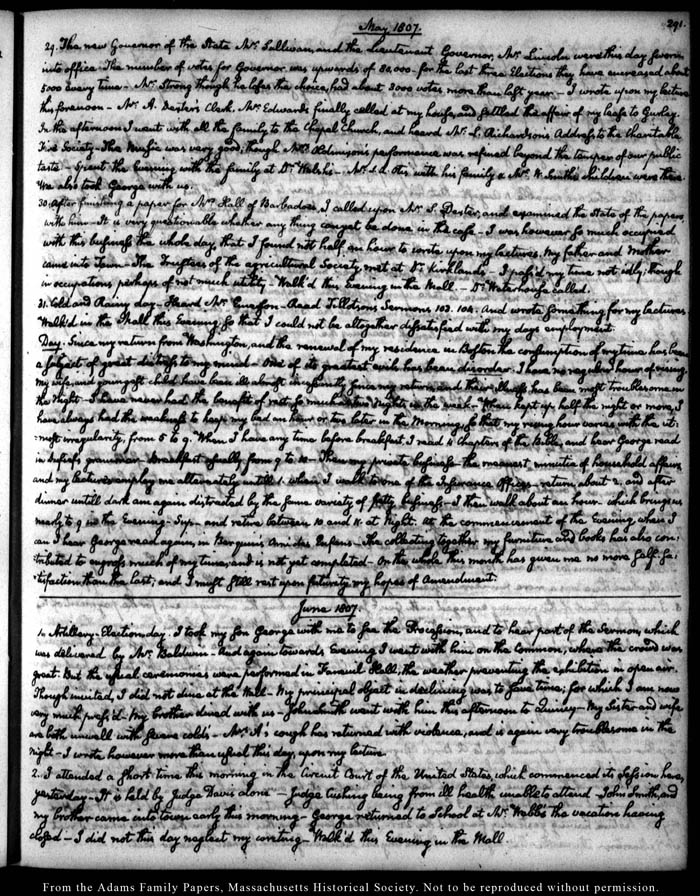 May 1807.
291.
29. The new Governor of the State Mr. Sullivan, and the Lieutenant Governor, Mr. Lincoln were this day sworn
into office. The number of votes for Governor was upwards of 80,000 - for the last three Elections they have encreased about
5000 every time - Mr. Strong though he loses the choice, had about 3000 votes more than last year - I wrote upon my lecture
this forenoon - Mr. A. Dexter's Clerk. Mr. Edwards finally called at my house, and settled the affair of my lease to Gurley.
In the afternoon I went with all the family to the Chapel Church, and heard Mr. L. Richardson's Address to the Charitable
Fire Society - The Music was very good; though Mr. performance was refined beyond the temper of our public
taste - Spent the Evening with the family at Dr. Welsh's - Mr. S. A. Otis with his family & Mr. W. Smith's children were there.
We also took George with us.
30. After finishing a paper for Mr. Hall of Barbadoes, I called upon Mr. S. Dexter, and examined the State of the papers,
with him - It is very questionable whether any thing can yet be done in the case - I was however so much occupied
with this business the whole day, that I found not half an hour to write upon my lectures. My father and Mother
came into Town - The Trustees of the agricultural Society met at Dr. Kirkland's - I pass'd my time not idly, though
in occupations perhaps of not much utility - Walk'd this Evening in the Mall - Dr. Waterhouse called.
31. Cold and Rainy day - Heard Mr. Emerson - Read Tillotson's Sermons 103. 104. And wrote something for my lectures
Walk'd in the Mall this Evening, so that I could not be altogether dissatisfied with my day's employment.
Day. Since my return from Washington, and the renewal of my residence in Boston the consumption of my time has been
a subject of great distress to my mind - One of its greatest evils has been disorder. I have no regular hour of rising.
My wife, and youngest child have been ill almost incessantly since my return, and their illness has been most troublesome in
the Night - I have never had the benefit of rest for so much as two Nights in the week - When kept up half the night or more, I
have always had the weakness to keep my bed an hour or two later in the Morning, so that my rising hour varies with the ut-
most irregularity, from 5 to 9. When I have any time before breakfast I read 12 Chapters of the Bible, and hear George read
in grammar - breakfast usually from 9 to 10 - Then my private business - the meanest minutiæ of household affairs,
and my lectures employ me alternately untill 1. when I walk to one of the Insurance Offices - return about 2, and after
dinner untill dark am again distracted by the same variety of petty business - I then walk about an hour - which brings us
nearly to 9 in the Evening - Sup - and retire between 10 and 11. at Night. At the commencement of the Evening, when I
can I hear George read again, in Berquin's Ami des Enfans - The collecting together my furniture and books has also con-
tributed to engross much of my time, and is not yet completed - On the whole this month has given me no more self-sa-
tisfaction than the last, and I must still rest upon futurity my hopes of Amendment.
June 1807.
1. Artillery-Election day. I took my son George with me to see the Procession, and to hear part of the Sermon, which
was delivered by Mr. Baldwin - And again towards Evening I went with him on the Common, where the crowd was
great. But the usual ceremonies were performed in Faneuil Hall; the weather preventing the exhibition in open air.
Though invited, I did not dine at the Hall - My principal object in declining was to save time; for which I am now
very much press'd - My brother dined with us - John Smith went with him this afternoon to Quincy - My Sister and wife
are both unwell with severe colds - Mr. A's cough has returned with violence, and is again very troublesome in the
Night - I wrote however more than usual this day, upon my lecture.
2. I attended a short time this morning in the Circuit Court of the United States, which commenced its Session here,
yesterday - It is held by Judge Davis alone - Judge Cushing being from ill health unable to attend - John Smith, and
my brother came into town early this morning - George returned to School at Mr. Webb's the vacation having
closed - I did not this day neglect my writing - Walk'd this Evening in the Mall.
From the Adams Family Papers, Massachusetts Historical Society. Not to be reproduced without permission.